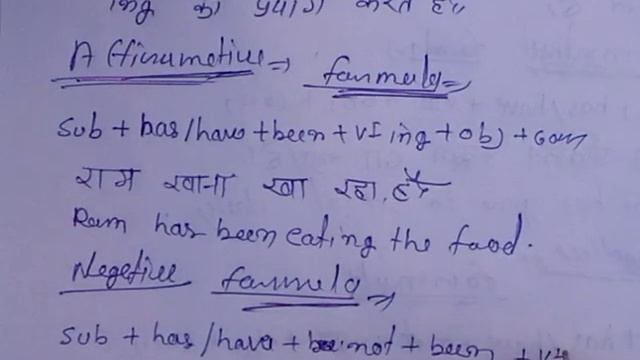 ing का प्रयोग करते हैं।
Affirmative⇒ farmula⇒
Sub + has/have + been + VI ing + ob) + Com
राम खाना खा रहा है
Ram has been eating the food.
Negetive farmula⇒
Sub + has/have + not + been + VI